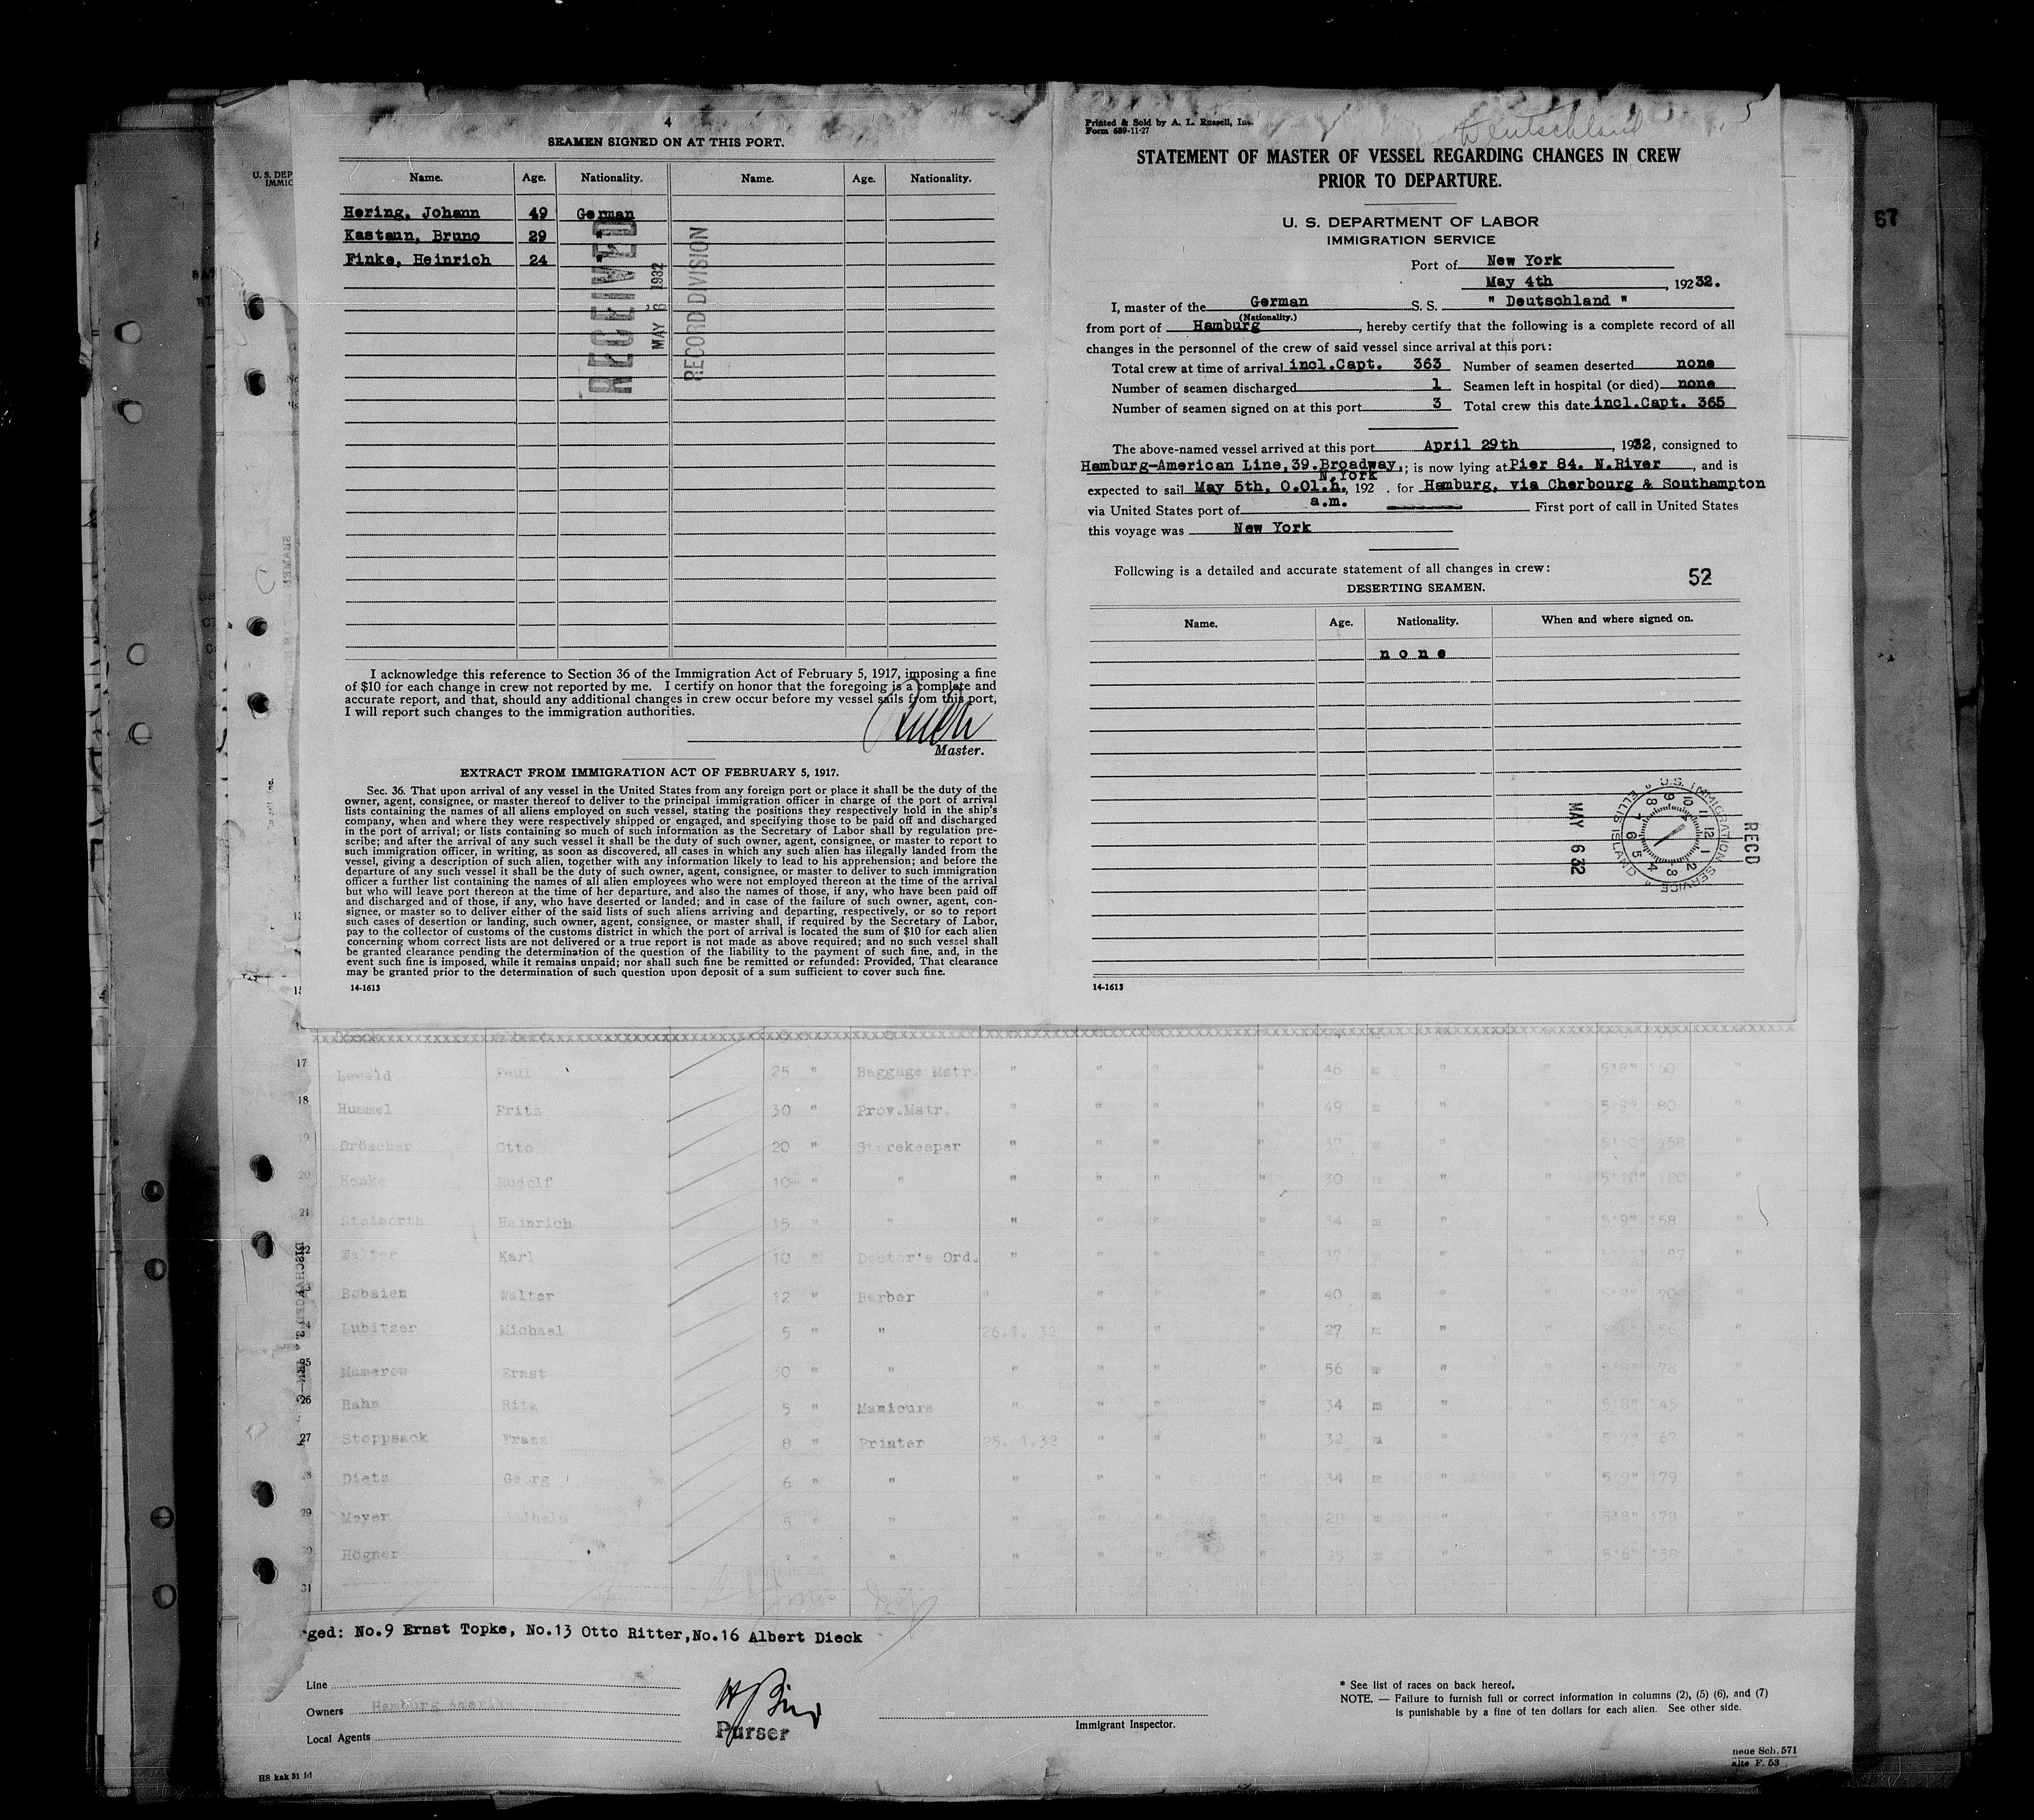 4
SEAMEN SIGNED ON AT THIS PORT.
Name. Age. Nationality. Name. Age. Nationality.
Hering, Johann 49 German
Kastaun, Bruno 29 "
Finke, Heinrich 24 "
RECEIVED
MAY 6 1932
RECORD DIVISION
I acknowledge this reference to Section 36 of the Immigration Act of February 5, 1917, imposing a fine
of $10 for each change in crew not reported by me. I certify on honor that the foregoing is a complete and
accurate report, and that, should any additional changes in crew occur before my vessel sails from this port,
I will report such changes to the immigration authorities.
Master.
EXTRACT FROM IMMIGRATION ACT OF FEBRUARY 5, 1917.
Sec. 36. That upon arrival of any vessel in the United States from any foreign port or place it shall be the duty of the
owner, agent, consignee, or master thereof to deliver to the principal immigration officer in charge of the port of arrival
lists containing the names of all aliens employed on such vessel, stating the positions they respectively hold in the ship's
company, when and where they were respectively shipped or engaged, and specifying those to be paid off and discharged
in the port of arrival; or lists containing so much of such information as the Secretary of Labor shall by regulation pre-
scribe; and after the arrival of any such vessel it shall be the duty of such owner, agent, consignee, or master to report to
such immigration officer, in writing, as soon as discovered, all cases in which any such alien has illegally landed from the
vessel, giving a description of such alien, together with any information likely to lead to his apprehension; and before the
departure of any such vessel it shall be the duty of such owner, agent, consignee, or master to deliver to such immigration
officer a further list containing the names of all alien employees who were not employed thereon at the time of the arrival
but who will leave port thereon at the time of her departure, and also the names of those, if any, who have been paid off
and discharged and of those, if any, who have deserted or landed; and in case of the failure of such owner, agent, con-
signee, or master so to deliver either of the said lists of such aliens arriving and departing, respectively, or so to report
such cases of desertion or landing, such owner, agent, consignee, or master shall, if required by the Secretary of Labor,
pay to the collector of customs of the customs district in which the port of arrival is located the sum of $10 for each alien
concerning whom correct lists are not delivered or a true report is not made as above required; and no such vessel shall
be granted clearance pending the determination of the question of the liability to the payment of such fine, and, in the
event such fine is imposed, while it remains unpaid; nor shall such fine be remitted or refunded: Provided, That clearance
may be granted prior to the determination of such question upon deposit of a sum sufficient to cover such fine.
14-1613
Printed & Sold by A. L. Russell, Inc.
Form 689-11-27
Deutschland
5
STATEMENT OF MASTER OF VESSEL REGARDING CHANGES IN CREW
PRIOR TO DEPARTURE.
U. S. DEPARTMENT OF LABOR
IMMIGRATION SERVICE
Port of New York
May 4th, 19232.
I, master of the German S. S. " Deutschland "
(Nationality.)
from port of Hamburg, hereby certify that the following is a complete record of all
changes in the personnel of the crew of said vessel since arrival at this port:
Total crew at time of arrival incl.Capt. 363 Number of seamen deserted none
Number of seamen discharged 1 Seamen left in hospital (or died) none
Number of seamen signed on at this port 3 Total crew this date incl.Capt. 365
The above-named vessel arrived at this port April 29th, 1932, consigned to
Hamburg-American Line,39.Broadway.; is now lying at Pier 84. N.River, and is
N.York
expected to sail May 5th, 0.01.h., 192 . for Hamburg, via Cherbourg & Southampton
a.m.
via United States port of First port of call in United States
this voyage was New York
Following is a detailed and accurate statement of all changes in crew:
52
DESERTING SEAMEN.
Name. Age. Nationality. When and where signed on.
none
U.S. IMMIGRATION SERVICE ELLIS ISLAND
MAY 6 32
RECD
14-1613
67
U. S. DEP
IMMIG
17 Lewald Paul 25 " Baggage Mstr. " " " " 46 m " " 5'8" 160 "
18 Hummel Fritz 30 " Prov.Mstr. " " " " 49 m " " 80 "
19 Dröscher Otto 20 " Storekeeper " " " " 37 " "
20 Henke Rudolf 10 " " " " " " 30 m " " 5'10" 180 "
21 Steinorth Heinrich 15 " " " " " " 34 m " " 5'9" 158 "
22 Walter Karl 10 " Doctor's Ord. " " " " 37 m " " "
23 Bobsien Walter 12 " Barber " " " " 40 m " " "
24 Lubitzer Michael 5 " " " " " 27 m " " "
25 Mamerow Ernst 30 " " " " " 56 m " " 178 "
26 Rahn Rita 5 " Manicure " " " " 34 m " " 5'8" 145 "
27 Stoppsack Franz 8 " Printer 25. 1.32 " " " 32 m " " 67 "
28 Dietz Georg 6 " " " " " " 34 m " " 5'9" 179 "
29 Meyer Wilhelm 5 " " " " " " 28 m " " 5'8" 178 "
30 Högner " " " " " " 25 m " " 5'6" 158 "
31
ged: No.9 Ernst Topke, No.13 Otto Ritter,No.16 Albert Dieck
Line
Owners Hamburg Amerika
Local Agents
Purser
Immigrant Inspector.
* See list of races on back hereof.
NOTE. — Failure to furnish full or correct information in columns (2), (5) (6), and (7)
is punishable by a fine of ten dollars for each alien. See other side.
neue Sch. 571
alte F. 53
HS kak 31 fd